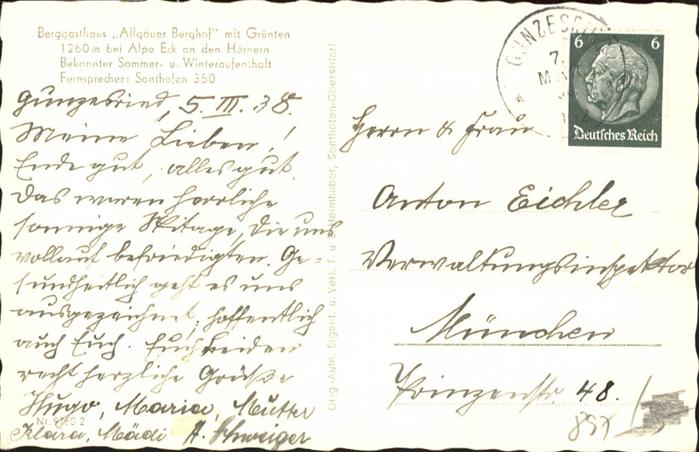 Berggasthaus „Allgäuer Berghof" mit Grünten
1260 m bei Alpe Eck an den Hörnern
Bekannter Sommer- u. Winteraufenthalt
Fernsprecher: Sonthofen 350
Gunzesried, 5. III. 38.
Meine Lieben!
Ende gut, alles gut.
Das waren herrliche
sonnige Skitage, die uns
vollauf befriedigten. Ge-
sundheitlich geht es uns
ausgezeichnet; hoffentlich
auch Euch. Euch beiden
recht herzliche Grüße
Hugo, Maria, Mutter
Klara, Mädi A. Schweiger
Nr. 2
Orig.-Aufn. Eigent. u. Verl. F. u. Heimhuber, Sonthofen-Oberstdorf
GUNZES
7.
6 6
Deutsches Reich
Herrn & Frau
Anton Eichler
Verwaltungsinspektor
München
Prinzenstr. 48.